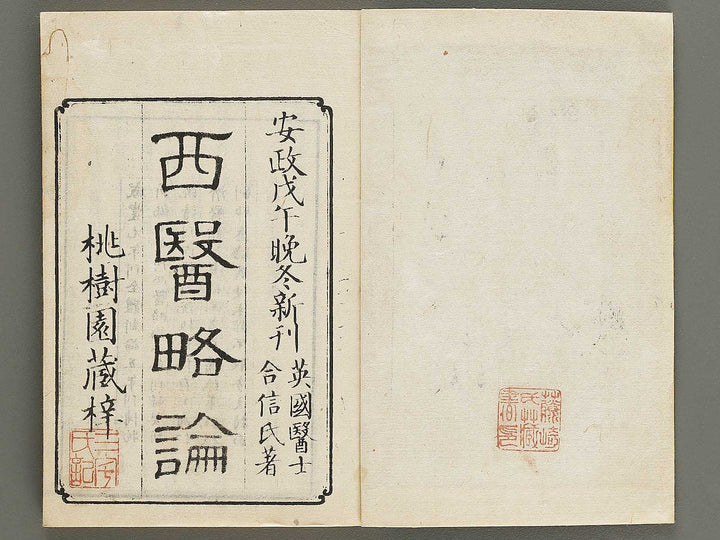 安政戊午晩冬新刊
英國醫士
合信氏著
西醫略論
桃樹園藏梓